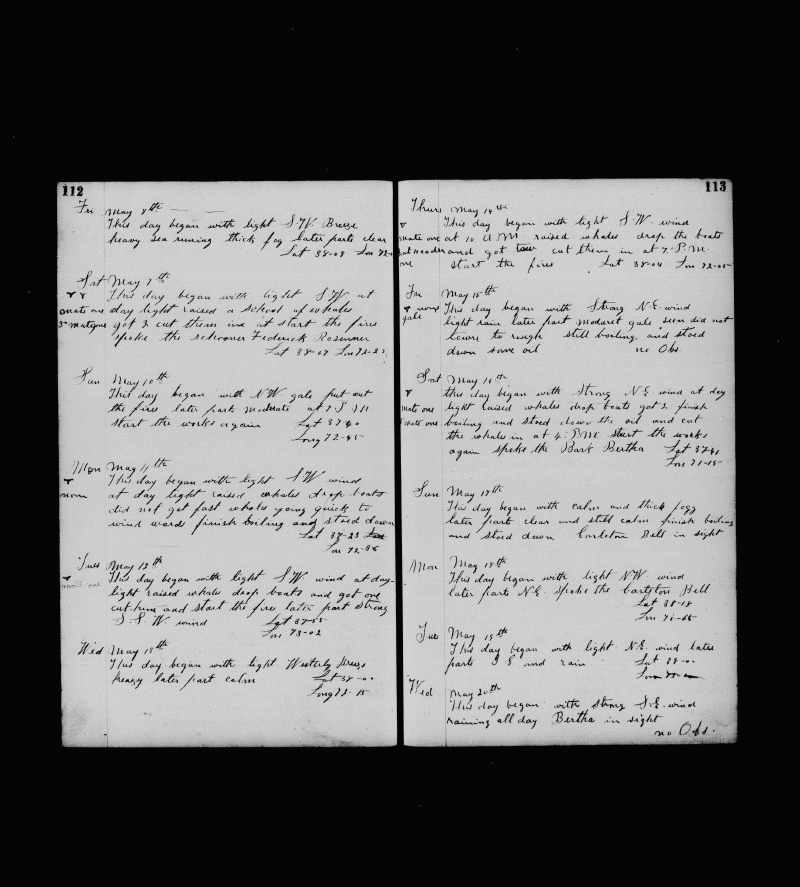 112
Fri May 8th
This day began with light S.W. Breeze
heavy sea running thick fog later parts clear
Lat 38-08 Lon 72-
Sat May 9th
This day began with light SW at
mate one day light raised a school of whales
3d mate one got 2 cut them in at start the fires
spoke the schooner Foderick Rosenner
Lat 38-07 Lon 72-22
Sun May 10th
This day began with N.W. gale put out
the fires later parts moderate at 7 P.M.
start the works again Lat 37-40
Long 72-45
Mon May 11th
This day began with light S.W. wind
none at day light raised whales drop boats
did not get fast whales going quick to
wind ward finish boiling and stoed down
Lat 37-23
Lon 72-36
Tues May 12th
This day began with light S.W. wind at day
mate one light raised whales drop boats and got one
cut him and start the fires later part strong
S.S.W. wind Lat 37-55
Lon 73-02
Wed May 13th
This day began with light Westerly Breeze
heazy later part calm Lat 38-00
Long 72-15
113
Thurs May 14th
This day began with light S.W. wind
mate one at 10 A.M. raised whales drop the boats
and got tow cut them in at 7. P.M.
one start the fires Lat 38-04 Lon 72-05
Fri May 15th
none This day began with Strong N.E. wind
gale light rain later part modaret gale seen did not
lowre to rough still boiling and stoed
down some oil no Obs.
Sat May 16th
this day began with Strong N.E. wind at day
mate one light raised whales drop boats got 2 finish
mate one boiling and stoed down the oil and cut
the whales in at 4. P.M. start the works
again spoke the Bark Bertha Lat 37-41
Lon 71-15
Sun May 17th
This day began with calm and thick fogg
later parts clear and still calm finish boiling
and stoed down Carleton Bell in sight
Mon May 18th
This day began with light N.W. wind
later parts N.E. spoke the Carleton Bell
Lat 38-18
Lon 71-55
Tue May 19th
This day began with light N.E. wind later
parts S E and rain Lat 38-00
Wed May 20th
This day began with strong S.E. wind
raining all day Bertha in sight
no Obs.